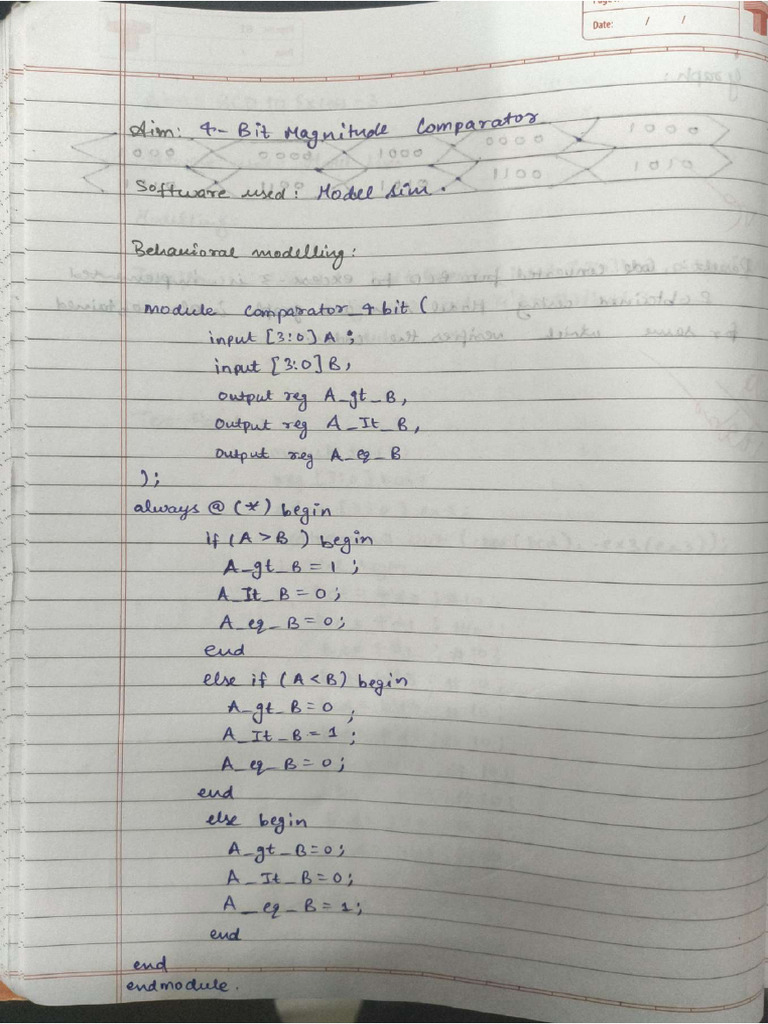 Date: / /
Aim: 4-Bit Magnitude Comparator
Software used: Model Sim.
Behavioral modelling:
module comparator_4bit (
input [3:0] A;
input [3:0] B,
output reg A_gt_B,
output reg A_It_B,
output reg A_eq_B
);
always @ (*) begin
if (A > B) begin
A_gt_B = 1 ;
A_It_B = 0 ;
A_eq_B = 0;
end
else if (A < B) begin
A_gt_B = 0 ;
A_It_B = 1 ;
A_eq_B = 0;
end
else begin
A_gt_B = 0;
A_It_B = 0;
A_eq_B = 1;
end
end
endmodule.